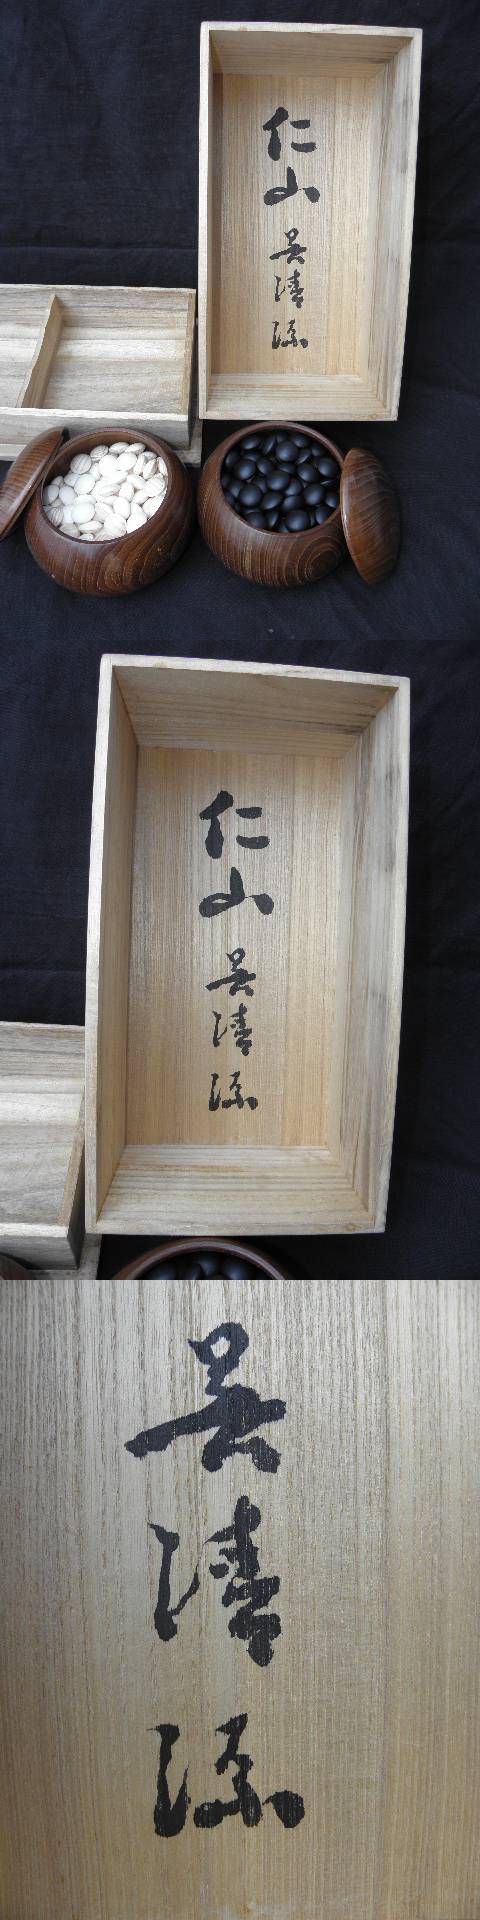 仁山
呉清源
仁山
呉清源
呉清源